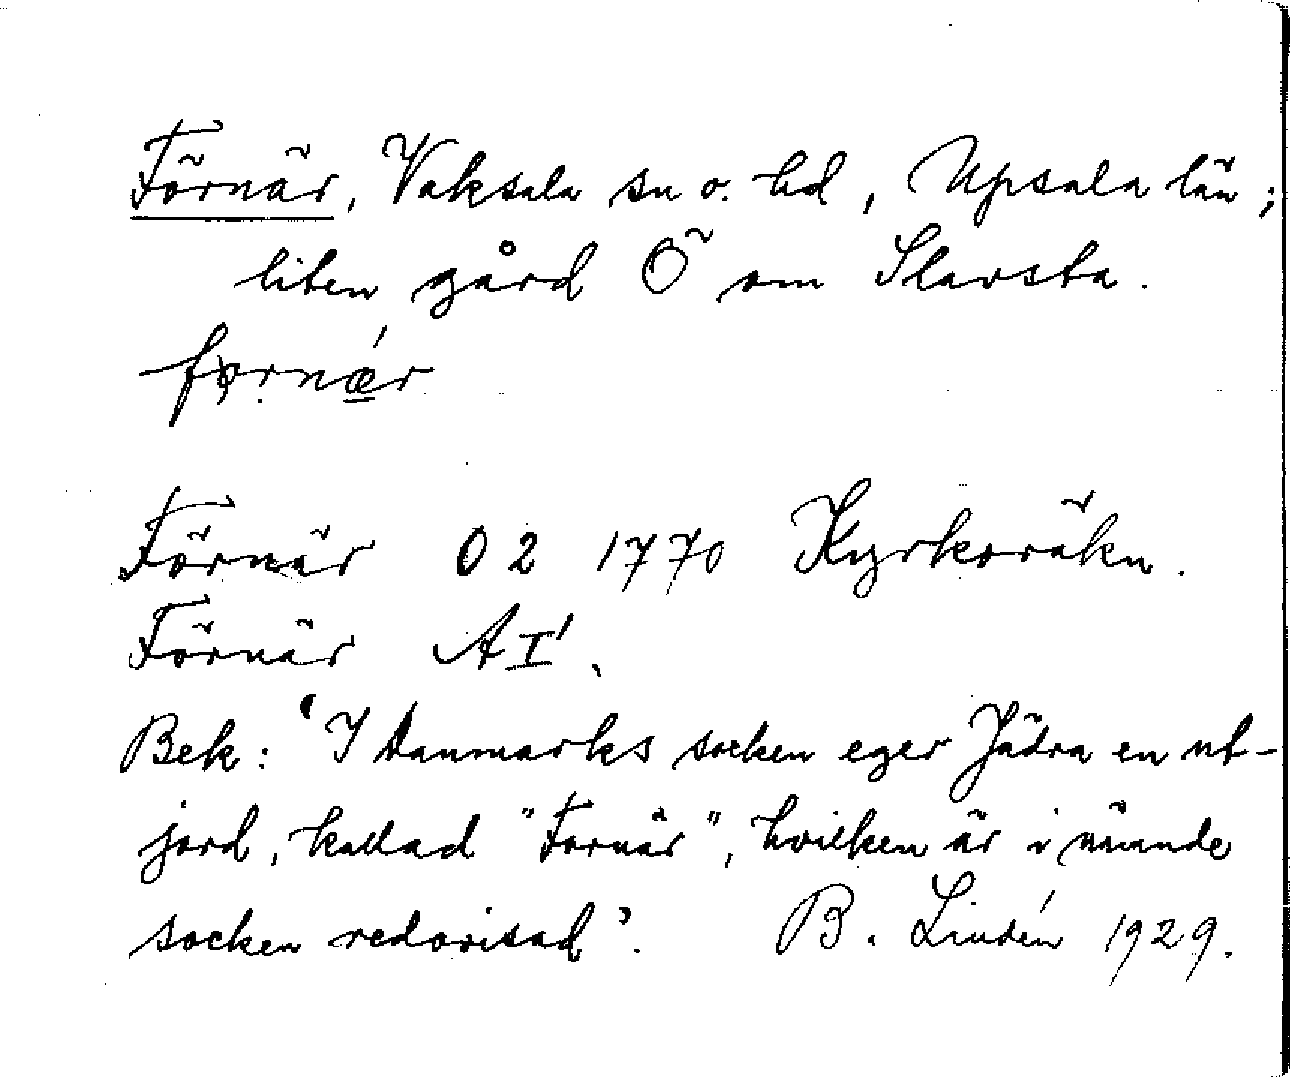 Förnär, Vaksala sn o. hd, Upsala län;
liten gård Ö om Slavsta.
førnǽr
Förnär O2 1770 Kyrkoräkn.
Förnär AI'.
Bek: ‘I Danmarks socken eger Jädra en ut-
jord, kallad "Fornär", hvilken är i nämnde
socken redovisad’. B. Lindén 1929.